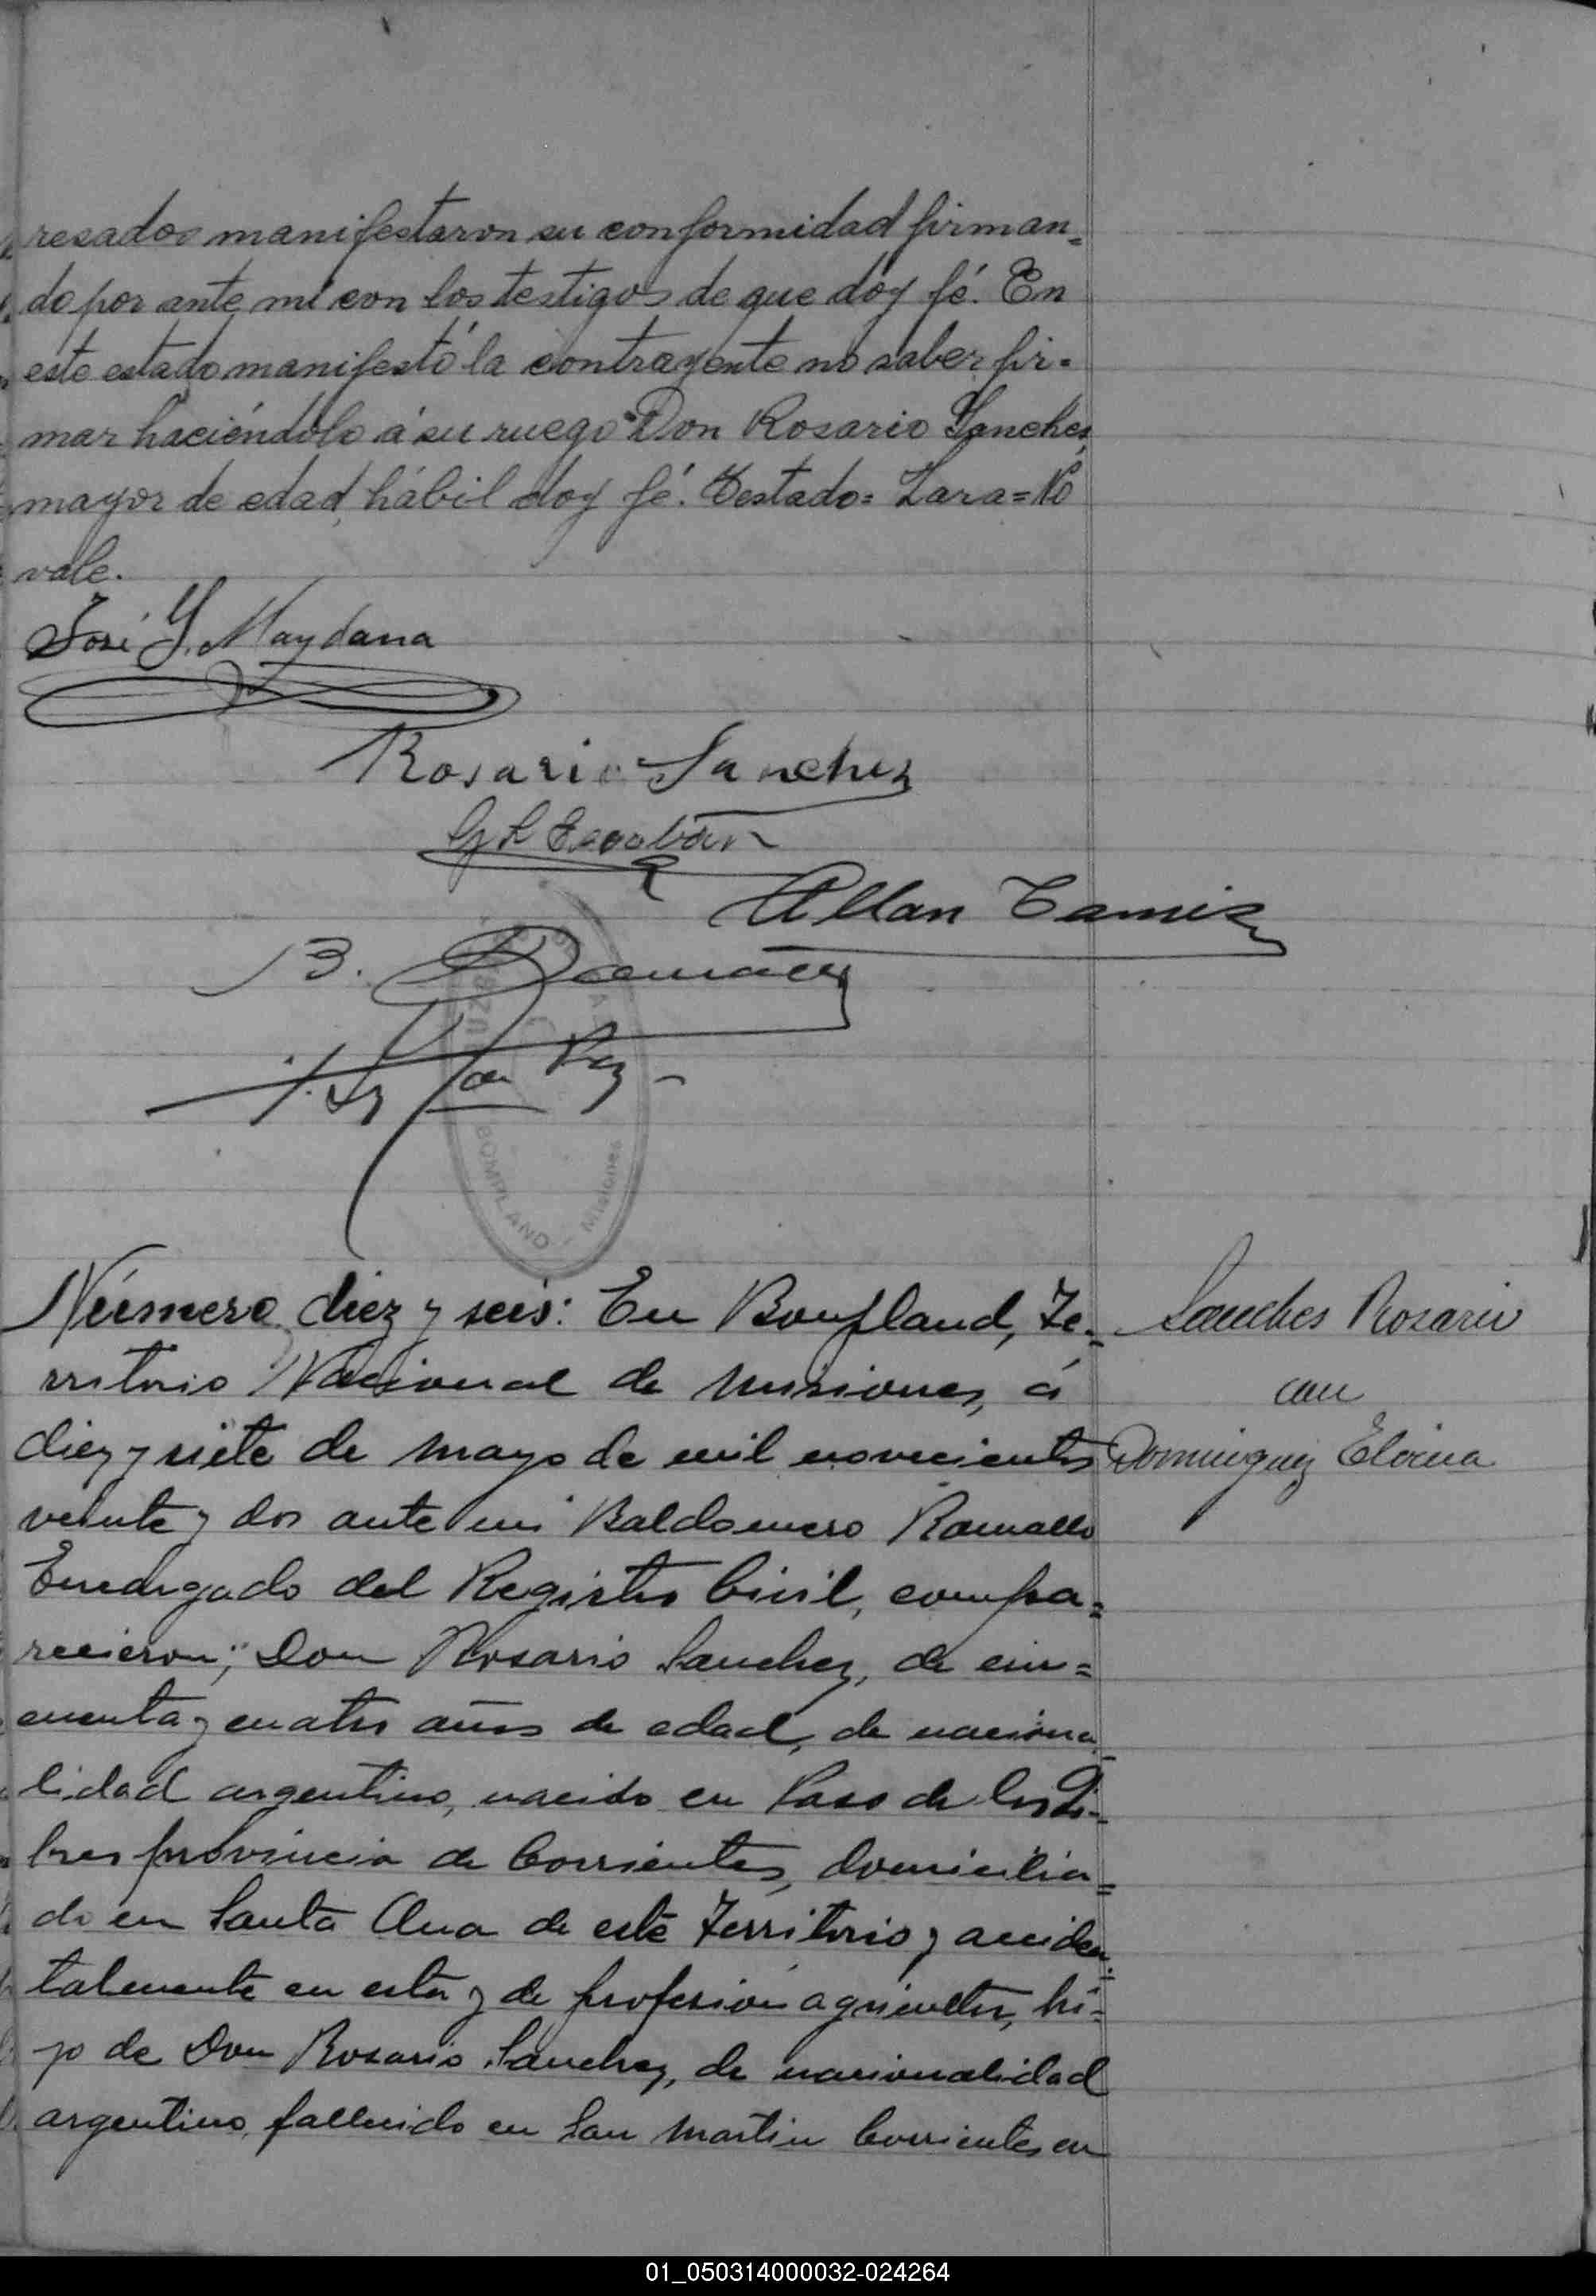 resados manifestaron su conformidad firman=
do por ante mí con los testigos de que doy fé. En
este estado manifestó la contrayente no saber fir=
mar haciéndolo á su ruego Don Rosario Sanches,
mayor de edad, hábil doy fé. Testado= Lara= No
vale.
José Y. Maydana
Rosario Sanchez
Escobar
Allan
B. Ramallo
BOMPLAND Misiones
Número diez y seis: En Bonpland, Te=
rritorio Nacional de Misiones, á
diez y siete de mayo de mil novecientos
veinte y dos ante mi Baldomero Ramallo
Encargado del Registro Civil, compa=
recieron; Don Rosario Sanchez, de cin=
cuenta y cuatro años de edad, de naciona
lidad argentino, nacido en Paso de los Li=
bres provincia de Corrientes, domicilia=
do en Santa Ana de este Territorio y acciden=
talmente en esta y de profesión agricultor, hi=
jo de Don Rosario Sanchez, de nacionalidad
argentino, fallecido en San Martin Corrientes en
Sanches Rosario
con
Dominguez Eloina
01_050314000032-024264